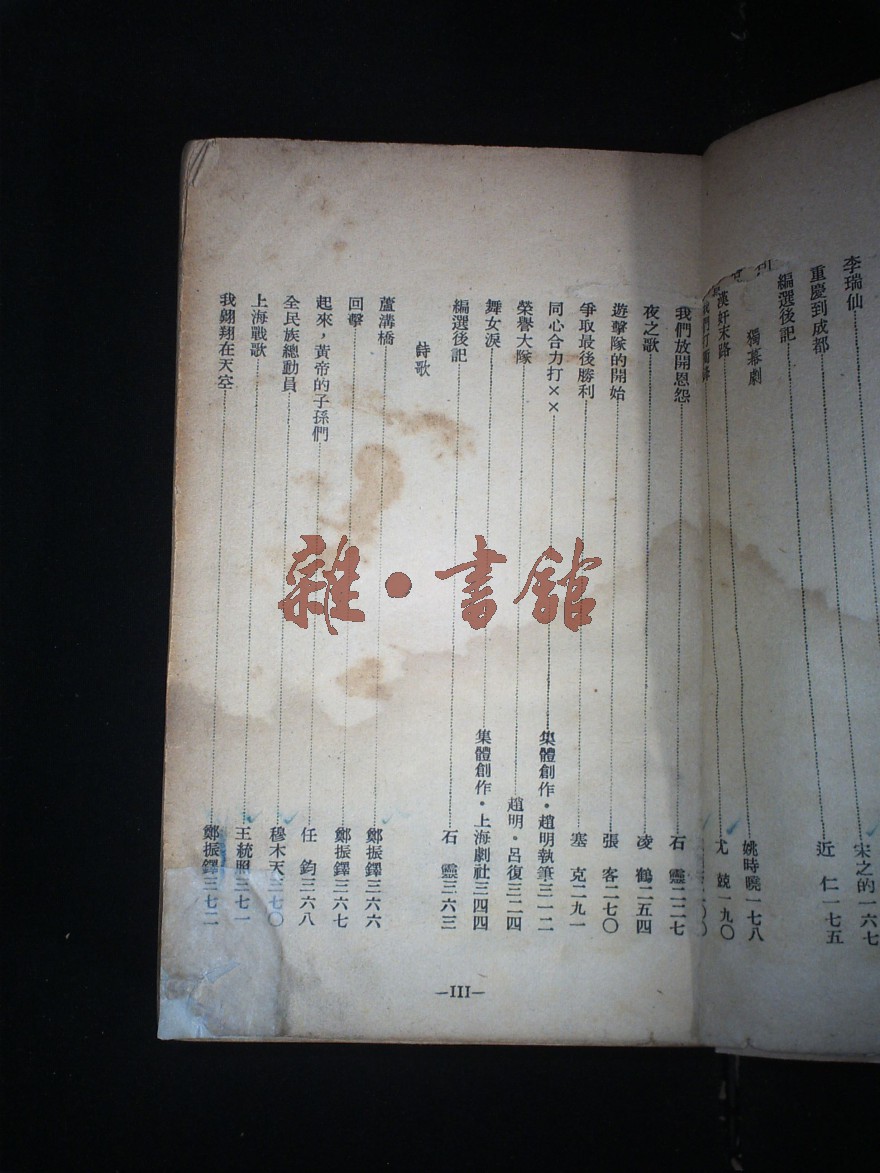 李瑞仙……宋之的一六七
重慶到成都……近　仁一七五
編選後記
獨幕劇
姚時曉一七八
漢奸末路……尤　兢一九〇
我們打
我們放開恩怨……石　靈二二七
夜之歌……凌　鶴二五四
遊擊隊的開始……張　客二七〇
爭取最後勝利……塞　克二九一
同心合力打××……集體創作·趙明執筆三一二
榮譽大隊……趙明·呂復三二四
舞女淚……集體創作·上海劇社三四四
編選後記……石　靈三六三
詩歌
蘆溝橋……鄭振鐸三六六
回擊……鄭振鐸三六七
起來，黃帝的子孫們……任　鈞三六八
全民族總動員……穆木天三七〇
上海戰歌……王統照三七一
我翱翔在天空……鄭振鐸三七二
—III—
雜·書館